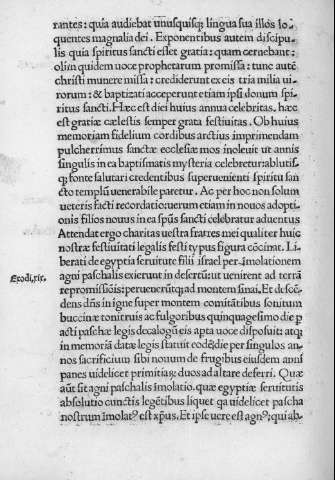 rantes: quia audiebat unusquisq; lingua sua illos lo-
quentes magnalia dei. Exponentibus autem discipu-
lis quia spiritus sancti esset gratia: quam cernebant:
olim quidem uoce prophetarum promissa: tunc autē
christi munere missa: crediderunt ex eis tria milia ui-
rorum: & baptizati acceperunt etiam ipsi donum spi-
ritus sancti. Hæc est diei huius annua celebritas. hæc
est gratiæ cælestis semper grata festiuitas. Ob huius
memoriam fidelium cordibus arctius imprimendam
pulcherrimus sanctæ ecclesiæ mos inoleuit ut annis
singulis in ea baptismatis mysteria celebrētur: ablutisq;
fonte salutari credentibus superuenienti spiritui san-
cto templū uenerabile paretur. Ac per hoc non solum
ueteris facti recordatio: uerum etiam in nouos adopti-
onis filios nouus in ea spūs sancti celebratur aduentus
Attendat ergo charitas uestra fratres mei qualiter huic
nostræ festiuitati legalis festi typus figura cōcinat. Li-
berati de egyptia seruitute filii israel per imolationem
Exodi, xix. agni paschalis exierunt in desertū: ut uenirent ad terrā
repromissiōis: peruenerūtq; ad montem sinai. Et descē-
dens dn̄s in igne super montem comitātibus sonitum
buccinæ tonitruis ac fulgoribus quinquagesimo die p
acti paschæ legis decalogū eis apta uoce disposuit: atq;
in memoriā datæ legis statuit eodē die per singulos an-
nos sacrificium sibi nouum de frugibus eiusdem anni
panes uidelicet primitiarꝝ duos ad altare deferri. Quæ
aūt sit agni paschalis imolatio. quæ egyptiæ seruitutis
absolutio cunctis legētibus liquet qa uidelicet pascha
nostrum imolatꝰ est xp̄us. Et ipse uere est agnꝰ; qui ab-